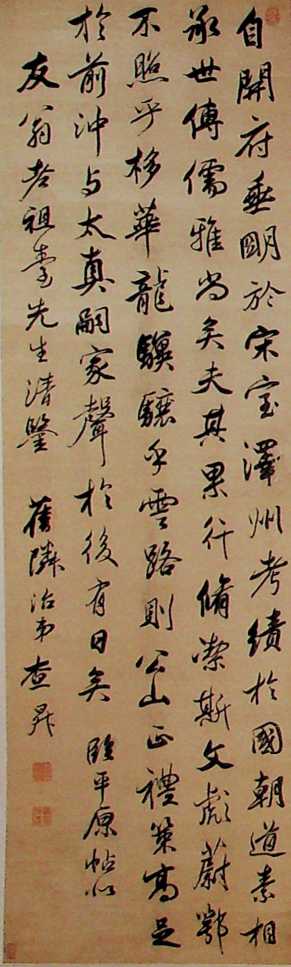 自開府垂明於宋室澤州考績於國朝道素相
承世傳儒雅尚矣夫其果行脩潔斯文彪蔚鄂
不照乎棣華龍驥驤乎雲路則公山正禮策高足
於前沖与太真嗣家聲於後有日矣 臨平原帖似
友翁老祖臺先生清鑒 舊隣治弟查昇